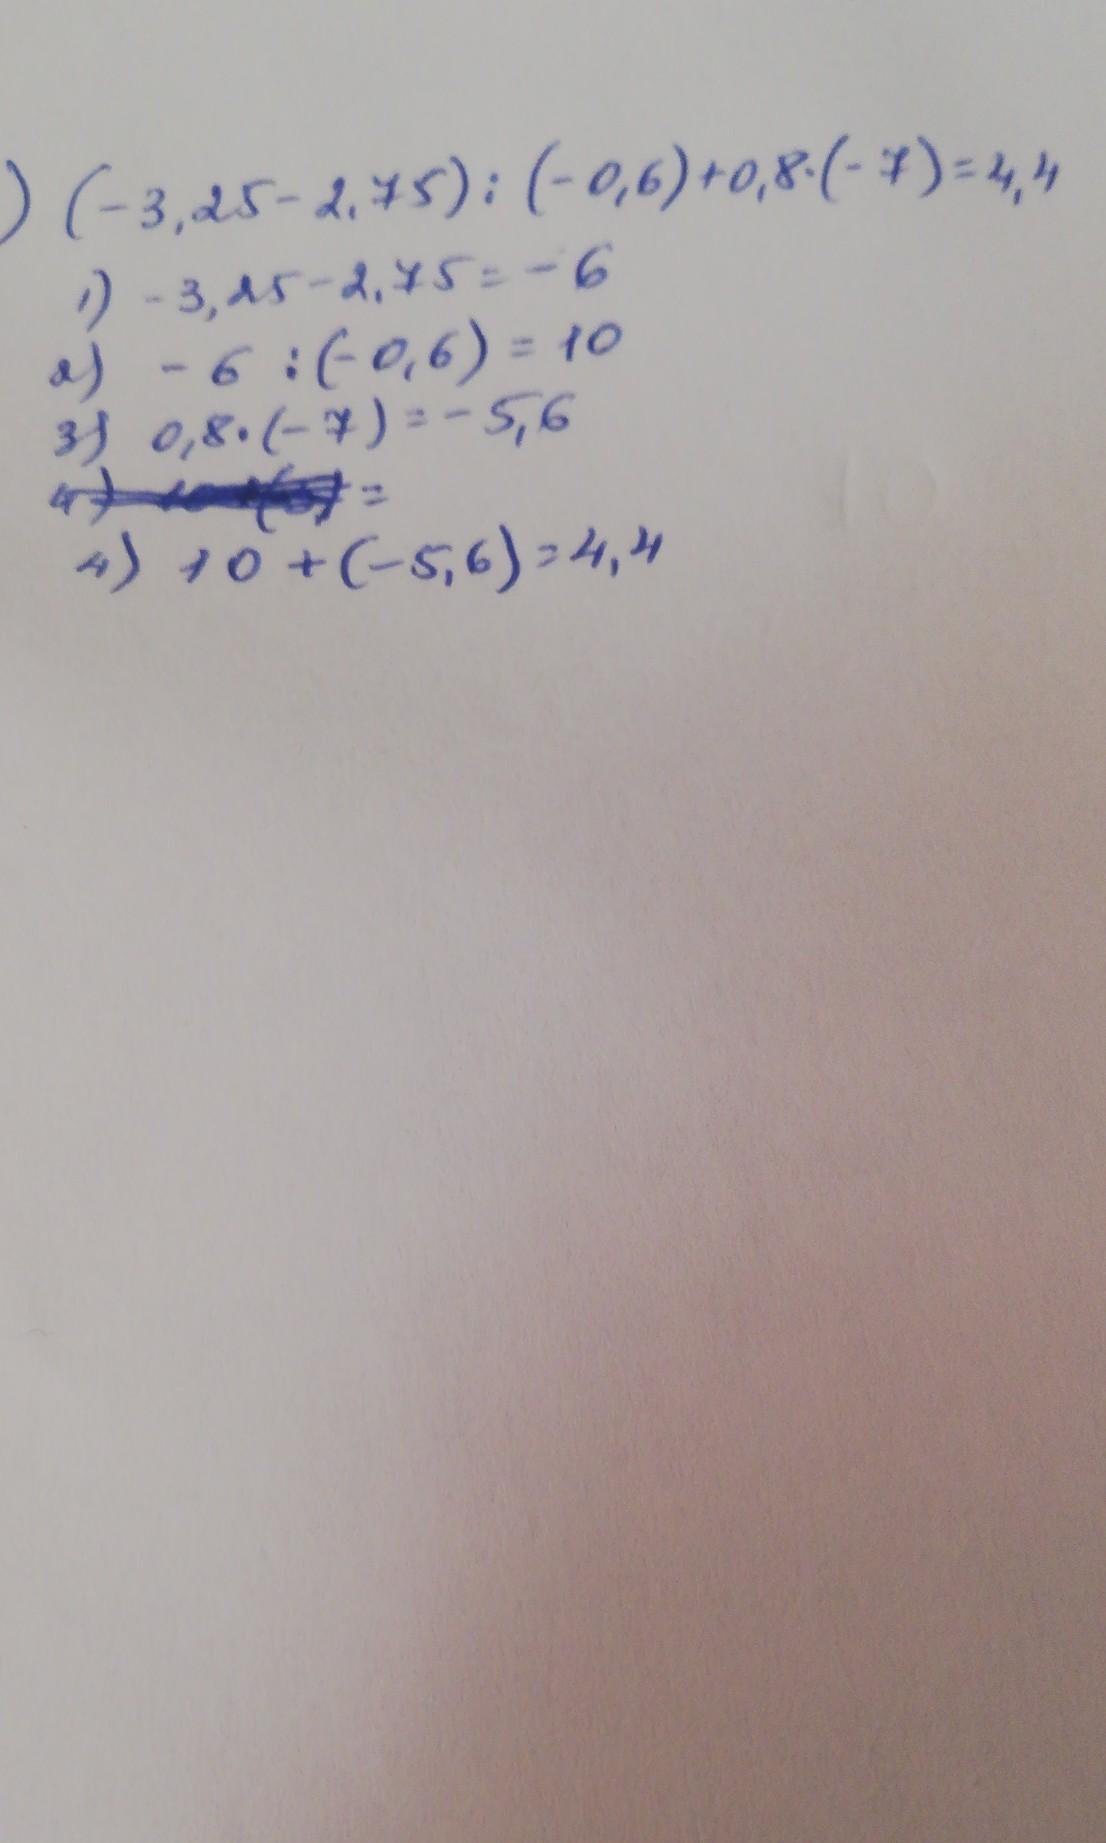 ) (-3,25-2,75):(-0,6)+0,8·(-7)=4,4
1) -3,25-2,75=-6
2) -6 :(-0,6)=10
3) 0,8·(-7)=-5,6
=
4) 10+(-5,6)=4,4